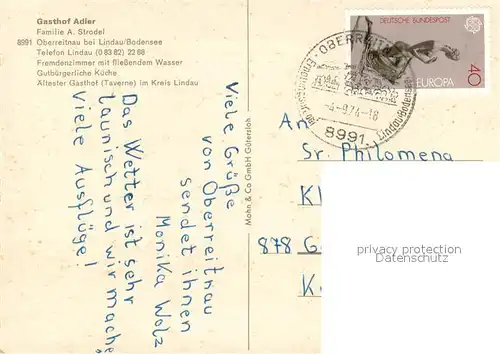 Gasthof Adler
Familie A. Strodel
8991 Oberreitnau bei Lindau/Bodensee
Telefon Lindau (0 83 82) 22 68
Fremdenzimmer mit fließendem Wasser
Gutbürgerliche Küche
Ältester Gasthof (Taverne) im Kreis Lindau
Viele Grüße
von Oberreitnau
sendet ihnen
Monika Walz
Das Wetter ist sehr
launisch und wir mache
Viele Ausflüge!
Mohn & Co GmbH Gütersloh
DEUTSCHE BUNDESPOST
EUROPA
40
-4-9.74-18
8991
An
Sr. Philomena
Kl
878 G
K
privacy protection
Datenschutz